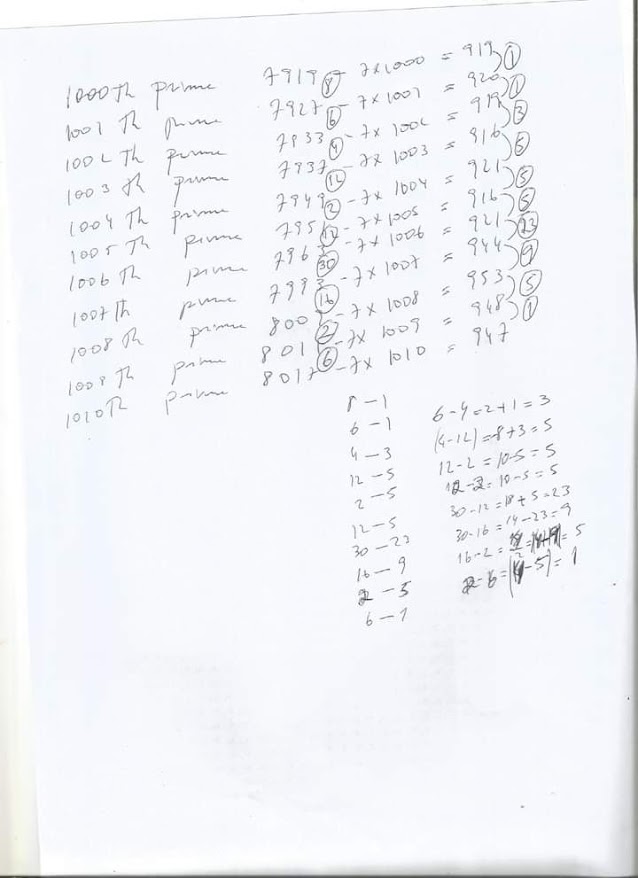 1000 Th prime 7919 - 7x1000 = 919
8 1
1001 Th prime 7927 - 7x1001 = 920
6 1
1002 Th prime 7933 - 7x1002 = 919
4 3
1003 th prime 7937 - 7x1003 = 916
12 5
1004 Th prime 7949 - 7x1004 = 921
2 5
1005 Th prime 7951 - 7x1005 = 916
12 5
1006 Th prime 7963 - 7x1006 = 921
30 23
1007 Th prime 7993 - 7x1007 = 944
16 9
1008 Th prime 8009 - 7x1008 = 953
2 5
1009 Th prime 8011 - 7x1009 = 948
6 1
1010 Th prime 8017 - 7x1010 = 947
8 - 1
6 - 1 6-4=2+1=3
4 - 3 (4-12)=8+3=5
12 - 5 12-2=10-5=5
2 - 5 12-2=10-5=5
12 - 5 30-12=18+5=23
30 - 23 30-16=14-23=9
16 - 9 16-2= =5
2 - 5 2-6=(4-5)=1
6 - 1